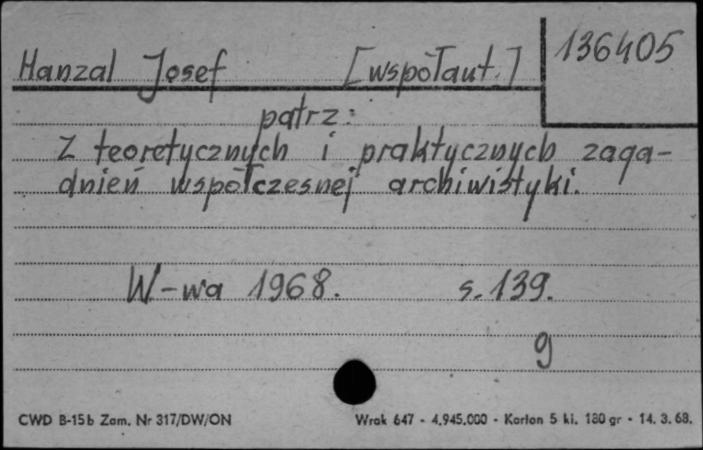 Hanzal Josef [współaut.] 136405
patrz:
Z teoretycznych i praktycznych zaga-
dnień współczesnej archiwistyki.
W-wa 1968. s. 139.
g
CWD B-15b Zam. Nr 317/DW/ON Wrak 647 - 4.945.000 - Karton 5 kl. 180 gr - 14. 3. 68.